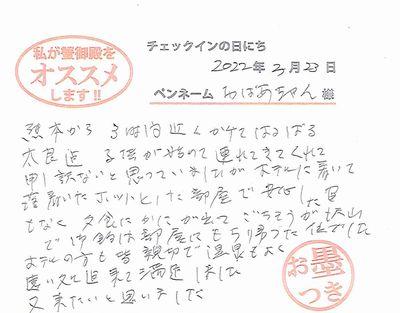 私が蟹御殿を
オススメ
します!!
チェックインの日にち
2022年2月23日
ペンネーム おばあちゃん 様
熊本から 3時間近くかけてはるばる
太良迄 子供が始めて連れてきてくれて
申し訳ないと思っていましたがホテルに着いて
落着いたホッとした部屋で安心した
もなく 夕食にかにが出て ごちそうが沢山
で 部屋にもち帰った 位でした
ホテルの方も皆親切で温泉もよく
遠い処迄来て満足しました
又来たいと思いました
お墨
つき